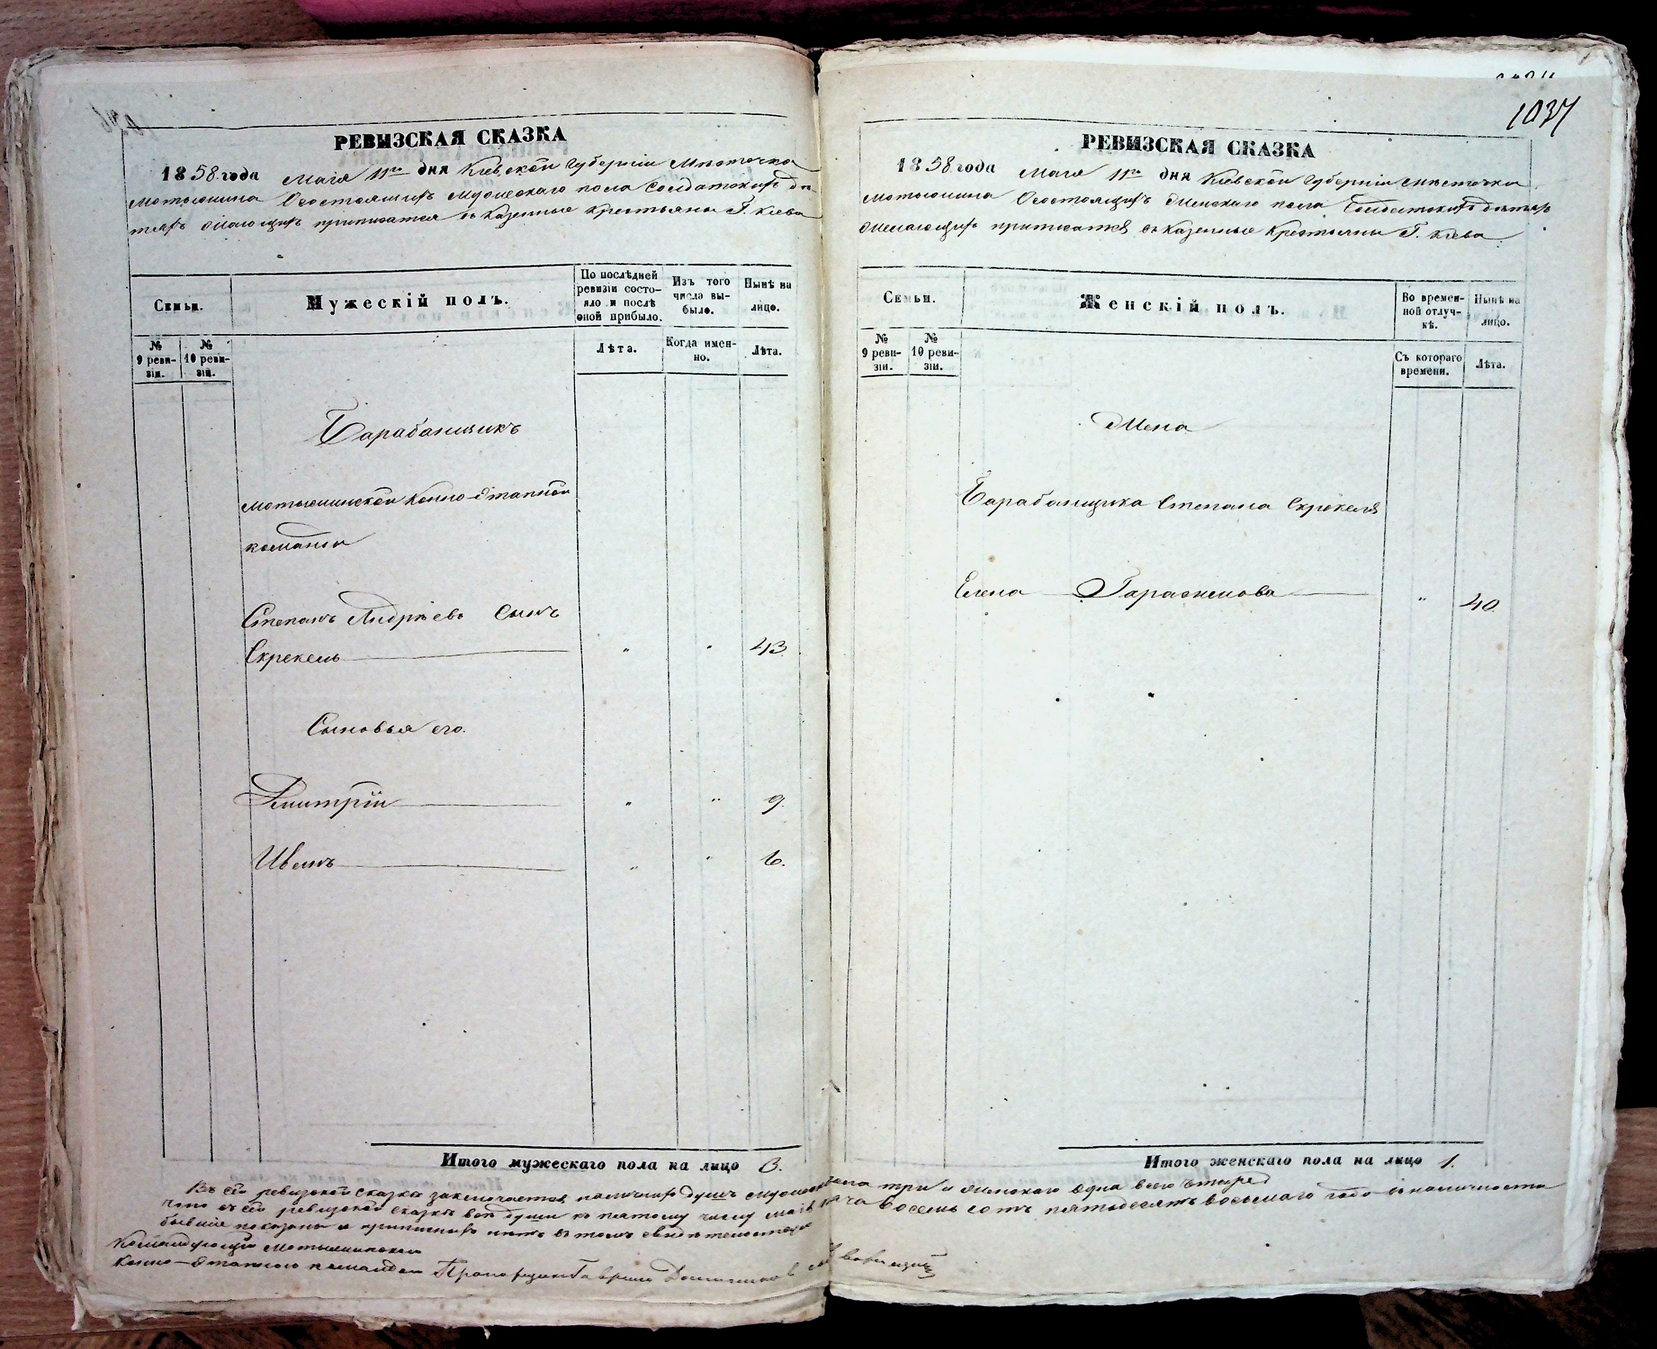 1037
РЕВИЗСКАЯ СКАЗКА
1858 года Мая 11го дня Кіевской Губерніи Мѣстечка
Мотыжина О состоящихъ Мужескаго пола Солдатскихъ дѣ-
тяхъ желающихъ приписатся въ казенные крестьяны Г. Кіева
Семьи.
Мужескій полъ.
По послѣдней
ревизіи состо-
яло и послѣ
оной прибыло.
Изъ того
числа вы-
было.
Нынѣ на
лицо.
№
9 реви-
зіи.
№
10 реви-
зіи.
Лѣта.
Когда имен-
но.
Лѣта.
Барабанщикъ
Мотыжинской Конно-Этапной
команды
Степанъ Андрѣевъ Сынъ
Скрекель " " 43.
Сыновья его.
Дмитрій " " 9.
Иванъ " " 6.
Итого мужескаго пола на лицо 3.
РЕВИЗСКАЯ СКАЗКА
1858 года Мая 11го дня Кіевской Губерніи мѣстечка
Мотыжина О состоящихъ Женскаго пола Солдатскихъ дѣтяхъ
желающихъ приписатся въ казенные крестьяны Г. Кіева
Семьи.
Женскій полъ.
Во времен-
ной отлуч-
кѣ.
Нынѣ на
лицо.
№
9 реви-
зіи.
№
10 реви-
зіи.
Съ котораго
времени.
Лѣта.
Жена
Барабанщика Степана Скрекеля
Елена Гарасимова " 40
Итого женскаго пола на лицо 1.
Въ сей ревизской сказкѣ заключается наличныхъ душъ мужеска пола три и женскаго одна всего четыре
что въ сей ревизской сказкѣ все души къ пятому числу Мая восемь сотъ пятьдесятъ восьмаго года въ наличности
бывшіе показаны и приписныхъ нѣтъ въ томъ свидѣтельствую
Командующій Мотыжинскою
Конно-Этапною командою Прапорщикъ Гаврило